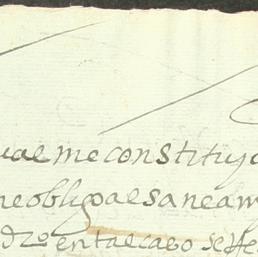 ual me constituyo
me obligo al saneam
dro en tal caso se He